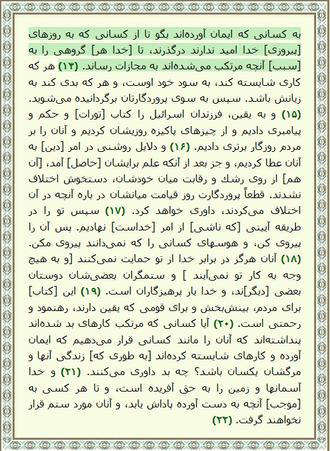 به كسانى كه ايمان آورده‌اند بگو تا از كسانى كه به روزهاى
[پيروزى] خدا اميد ندارند درگذرند، تا [خدا هر] گروهى را به
[سبب] آنچه مرتكب مى‌شده‌اند به مجازات رساند. (۱۴) هر كه
كارى شايسته كند، به سود خود اوست، و هر كه بدى كند به
زيانش باشد. سپس به سوى پروردگارتان برگردانيده مى‌شويد.
(۱۵) و به يقين، فرزندان اسرائيل را كتاب [تورات] و حكم و
پيامبرى داديم و از چيزهاى پاكيزه روزيشان كرديم و آنان را بر
مردم روزگار برترى داديم. (۱۶) و دلايل روشنى در امر [دين] به
آنان عطا كرديم، و جز بعد از آنكه علم برايشان [حاصل] آمد، [آن
هم] از روى رشك و رقابت ميان خودشان، دستخوش اختلاف
نشدند. قطعاً پروردگارت روز قيامت ميانشان در باره آنچه در آن
اختلاف مى‌كردند، داورى خواهد كرد. (۱۷) سپس تو را در
طريقه آيينى [كه ناشى] از امر [خداست] نهاديم. پس آن را
پيروى كن، و هوسهاى كسانى را كه نمى‌دانند پيروى مكن.
(۱۸) آنان هرگز در برابر خدا از تو حمايت نمى‌كنند [و به هيچ
وجه به كار تو نمى‌آيند ] و ستمگران بعضى‌شان دوستان
بعضى [ديگر]ند، و خدا يار پرهيزگاران است. (۱۹) اين [كتاب]
براى مردم، بينش‌بخش و براى قومى كه يقين دارند، رهنمود و
رحمتى است. (۲۰) آيا كسانى كه مرتكب كارهاى بد شده‌اند
پنداشته‌اند كه آنان را مانند كسانى قرار مى‌دهيم كه ايمان
آورده و كارهاى شايسته كرده‌اند [به طورى كه] زندگى آنها و
مرگشان يكسان باشد؟ چه بد داورى مى‌كنند. (۲۱) و خدا
آسمانها و زمين را به حق آفريده است، و تا هر كسى به
[موجب] آنچه به دست آورده پاداش يابد، و آنان مورد ستم قرار
نخواهند گرفت. (۲۲)